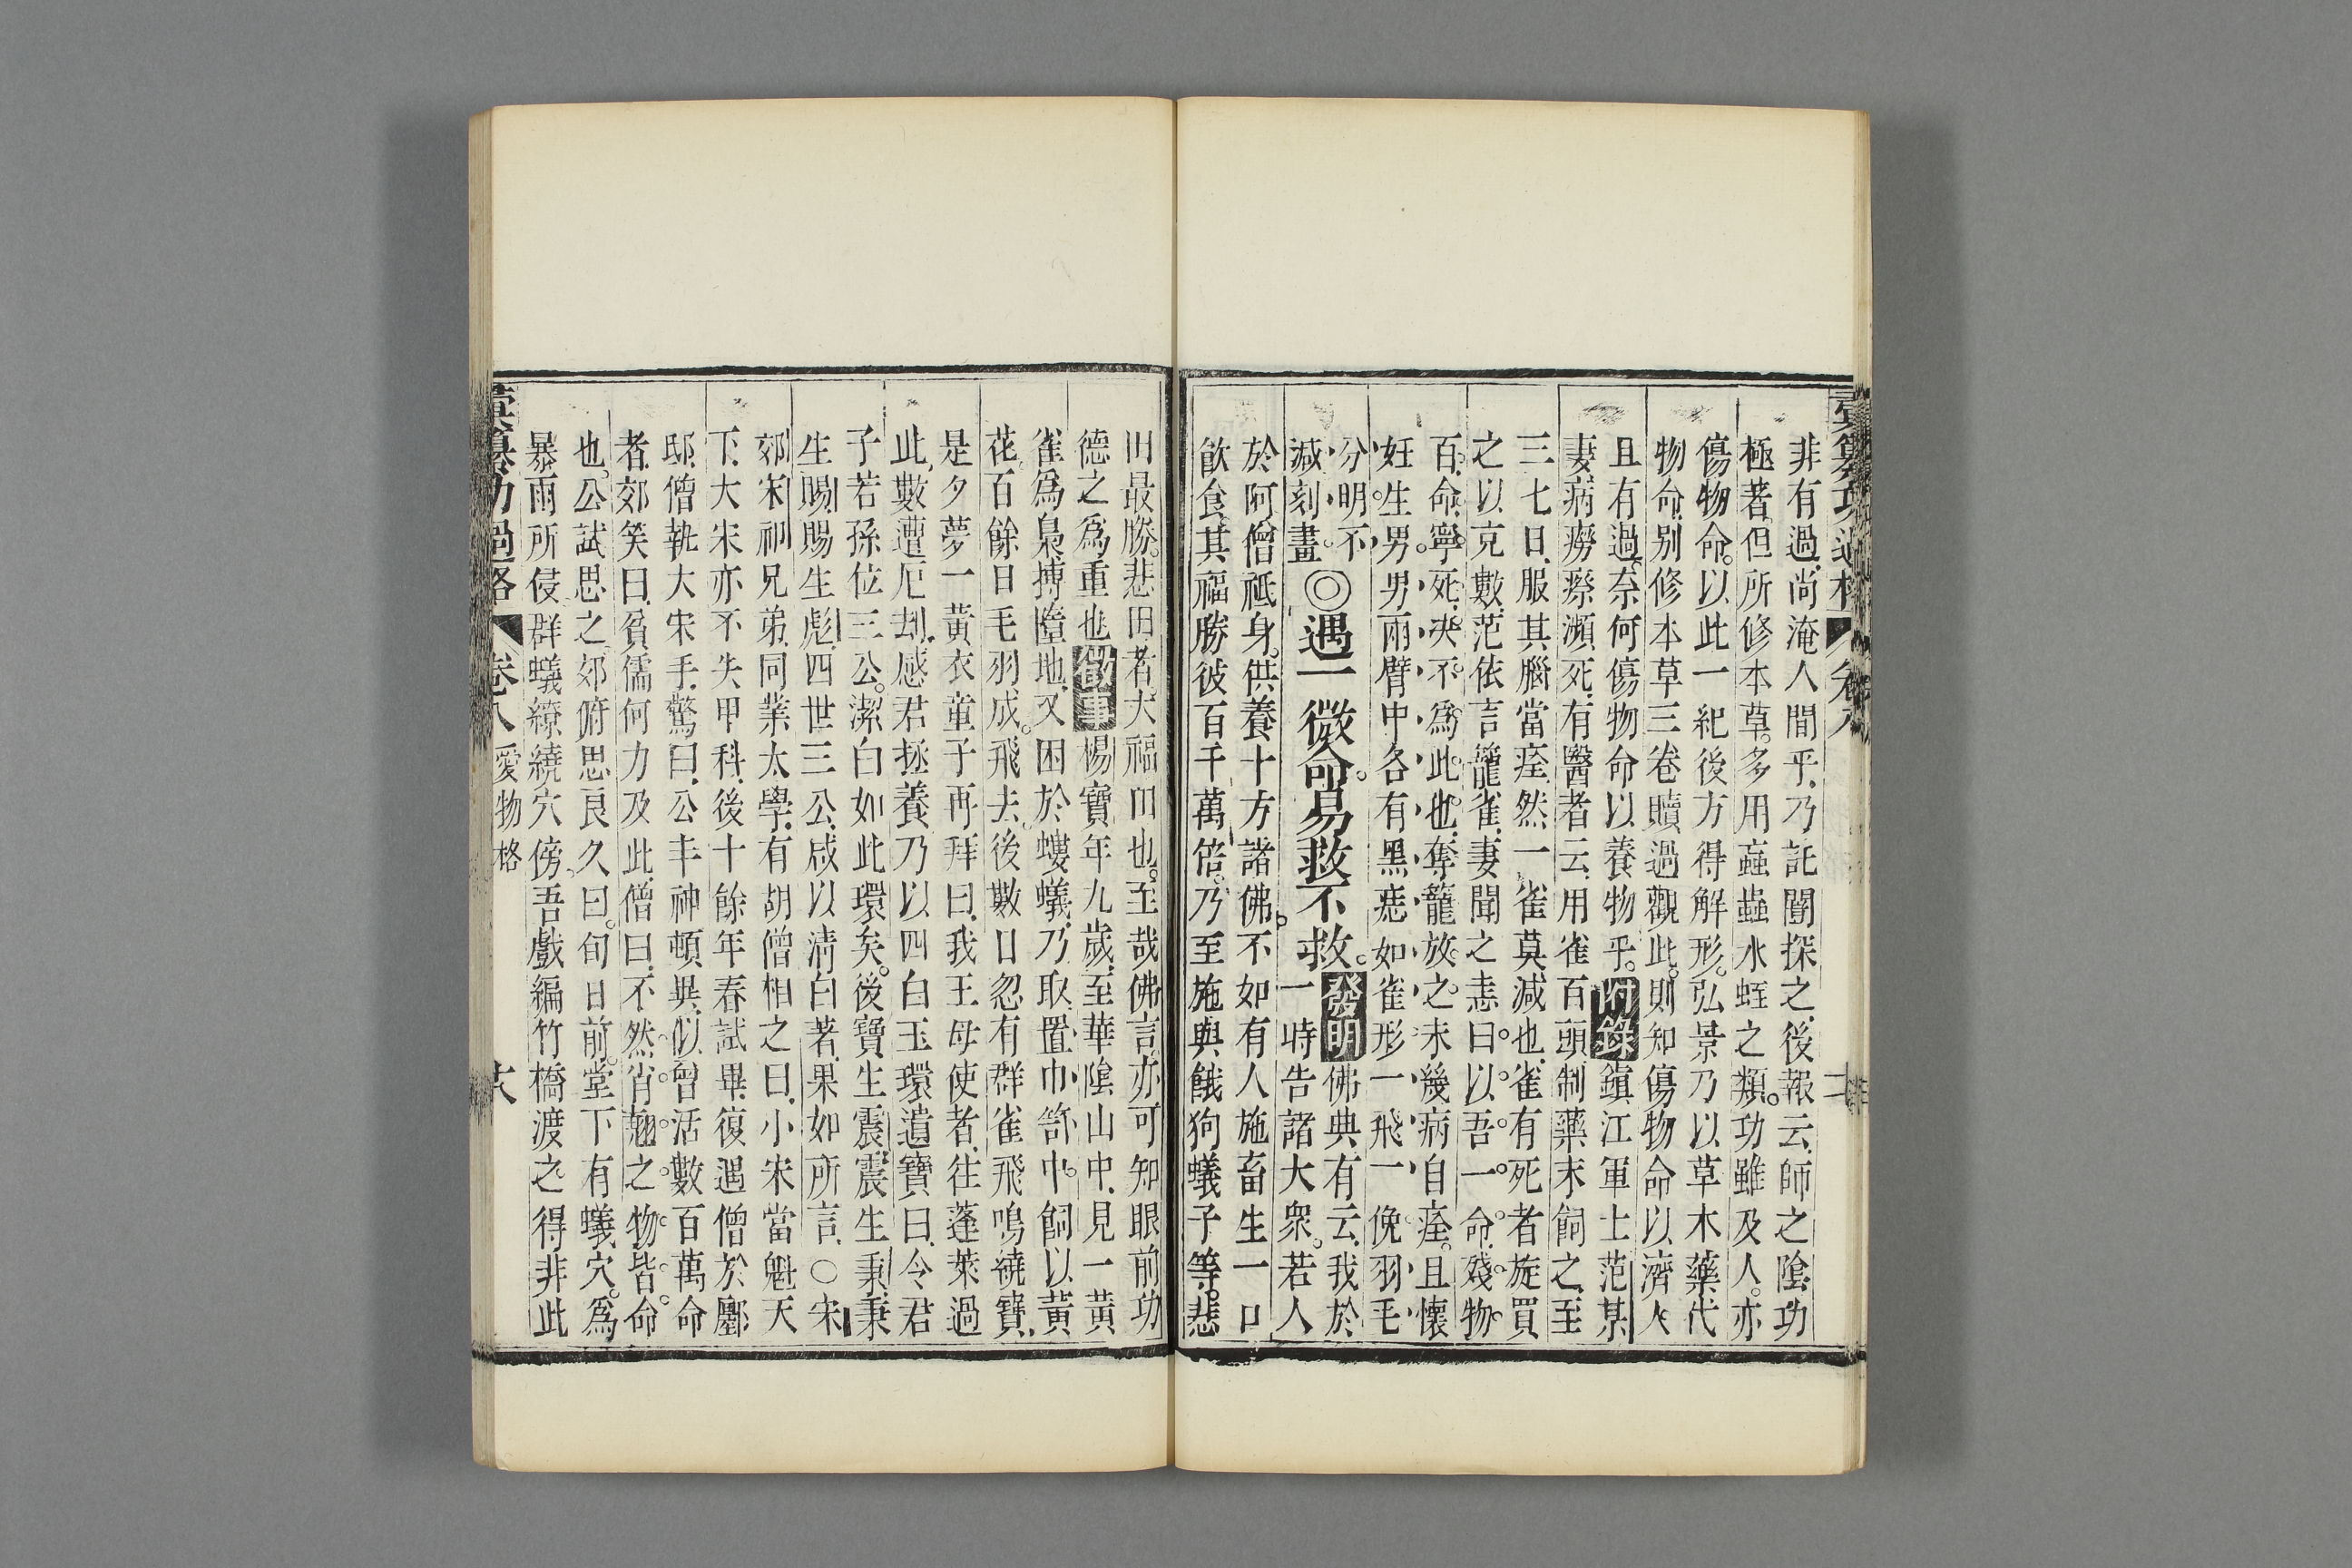 彙纂功過格 卷八
非有過尚淹人間乎乃託闇探之後報云師之陰功
極著但所修本草多用䖟蟲水蛭之類功雖及人亦
傷物命以此一紀後方得解形弘景乃以草木藥代
物命别修本草三卷贖過觀此則知傷物命以濟人
且有過柰何傷物命以養物乎附錄鎮江軍士范某
妻病癆瘵瀕死有醫者云用雀百頭制藥末飼之至
三七日服其腦當痊然一雀莫減也雀有死者旋買
之以克數范依言籠雀妻聞之恚曰以吾一命殘物
百命寧死決不為此也奪籠放之未幾病自痊且懷
妊生男男兩臂中各有黑痣如雀形一飛一俛羽毛
分明不
減刻畫◎遇一微命易救不救一時告諸大衆若人
發明佛典有云我於
於阿僧祇身供養十方諸佛不如有人施畜生一口
飲食其福勝彼百千萬倍乃至施與餓狗蟻子等悲
田最勝悲田者大福田也至哉佛言亦可知眼前功
德之為重也徵事楊寶年九歲至華隂山中見一黃
雀為梟搏墮地又困於螻蟻乃取置巾笥中飼以黃
花百餘日毛羽成飛去後數日忽有群雀飛鳴繞寶
是夕夢一黃衣童子再拜曰我王母使者往蓬萊過
此數遭厄刼感君拯養乃以四白玉環遺寶曰令君
子若孫位三公潔白如此環矣後寶生震震生秉秉
生賜賜生彪四世三公咸以清白著果如所言○宋
郊宋祁兄弟同業太學有胡僧相之曰小宋當魁天
下大宋亦不失甲科後十餘年春試畢復遇僧於鄽
邸僧執大宋手驚曰公丰神頓異似曾活數百萬命
者郊笑曰貧儒何力及此僧曰不然肖翹之物皆命
也公試思之郊俯思良久曰旬日前堂下有蟻穴為
暴雨所侵群蟻繚繞穴傍吾戲編竹橋渡之得非此
彙纂功過格 卷八 愛物格